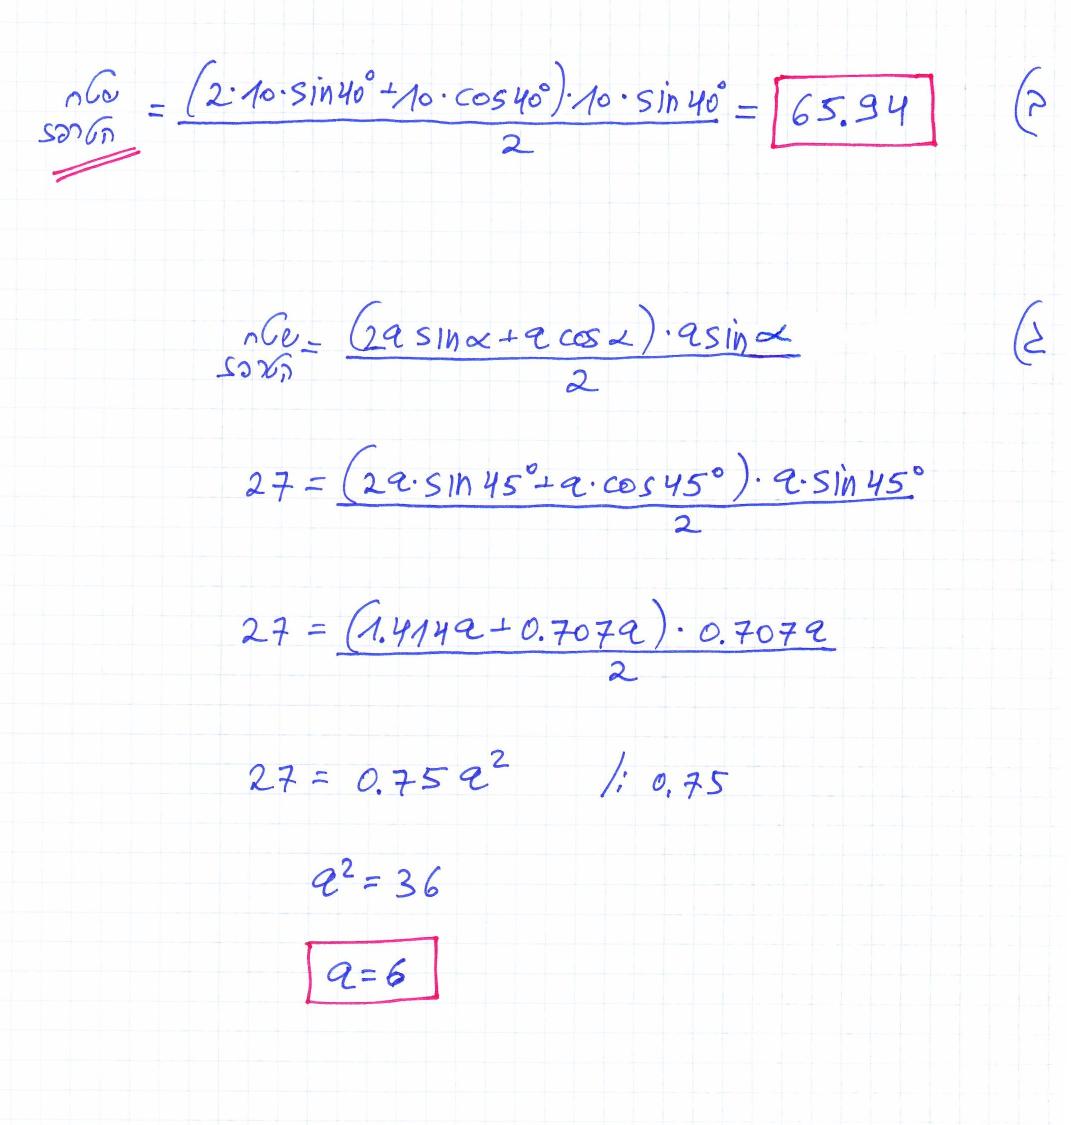 ב) שטח הטרפז = (2·10·sin40°+10·cos40°)·10·sin40° / 2 = 65.94
ג) שטח הטרפז = (2a sinα+a cosα)·a sinα / 2
27 = (2a·sin45°+a·cos45°)·a·sin45° / 2
27 = (1.414a+0.707a)·0.707a / 2
27 = 0.75a² /: 0.75
a² = 36
a=6